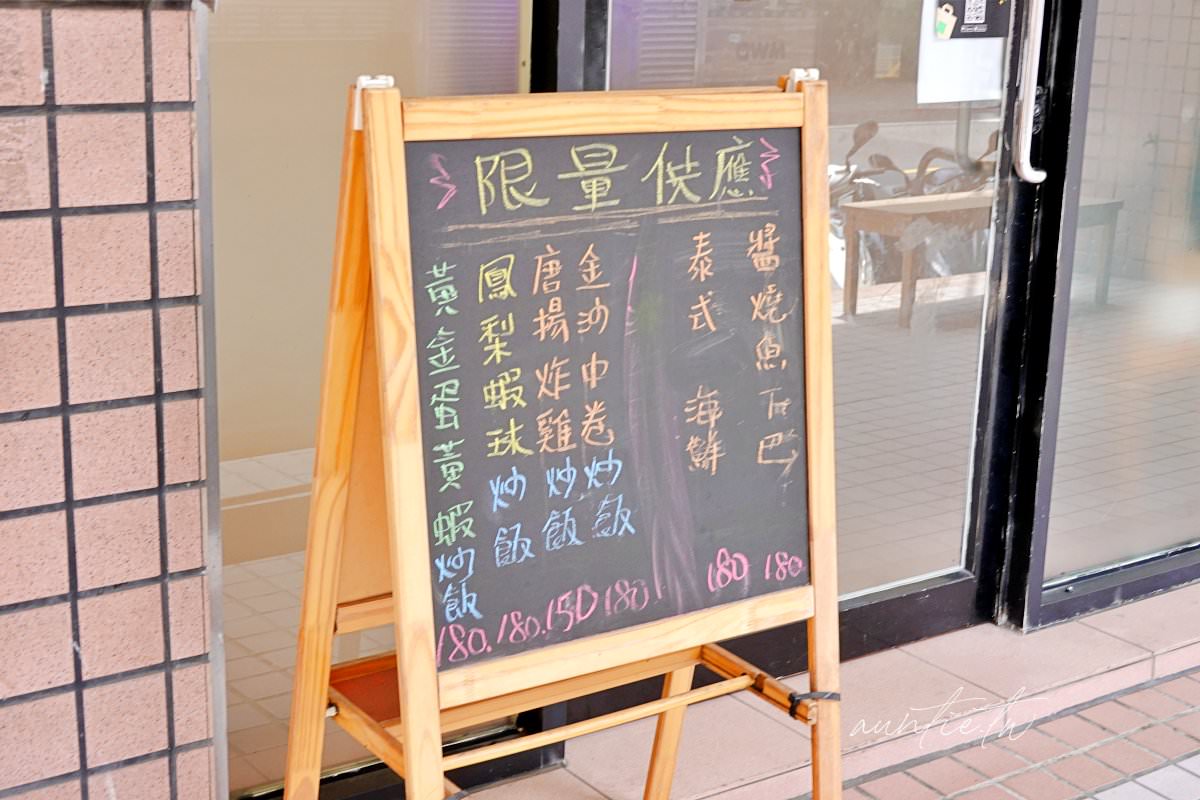 限量供應
醬燒魚下巴 180
泰式海鮮 180
金沙中卷炒飯 180
唐揚炸雞炒飯 150
鳳梨蝦球炒飯 180.
黃金蛋黃蝦炒飯 180.
auntie.tw